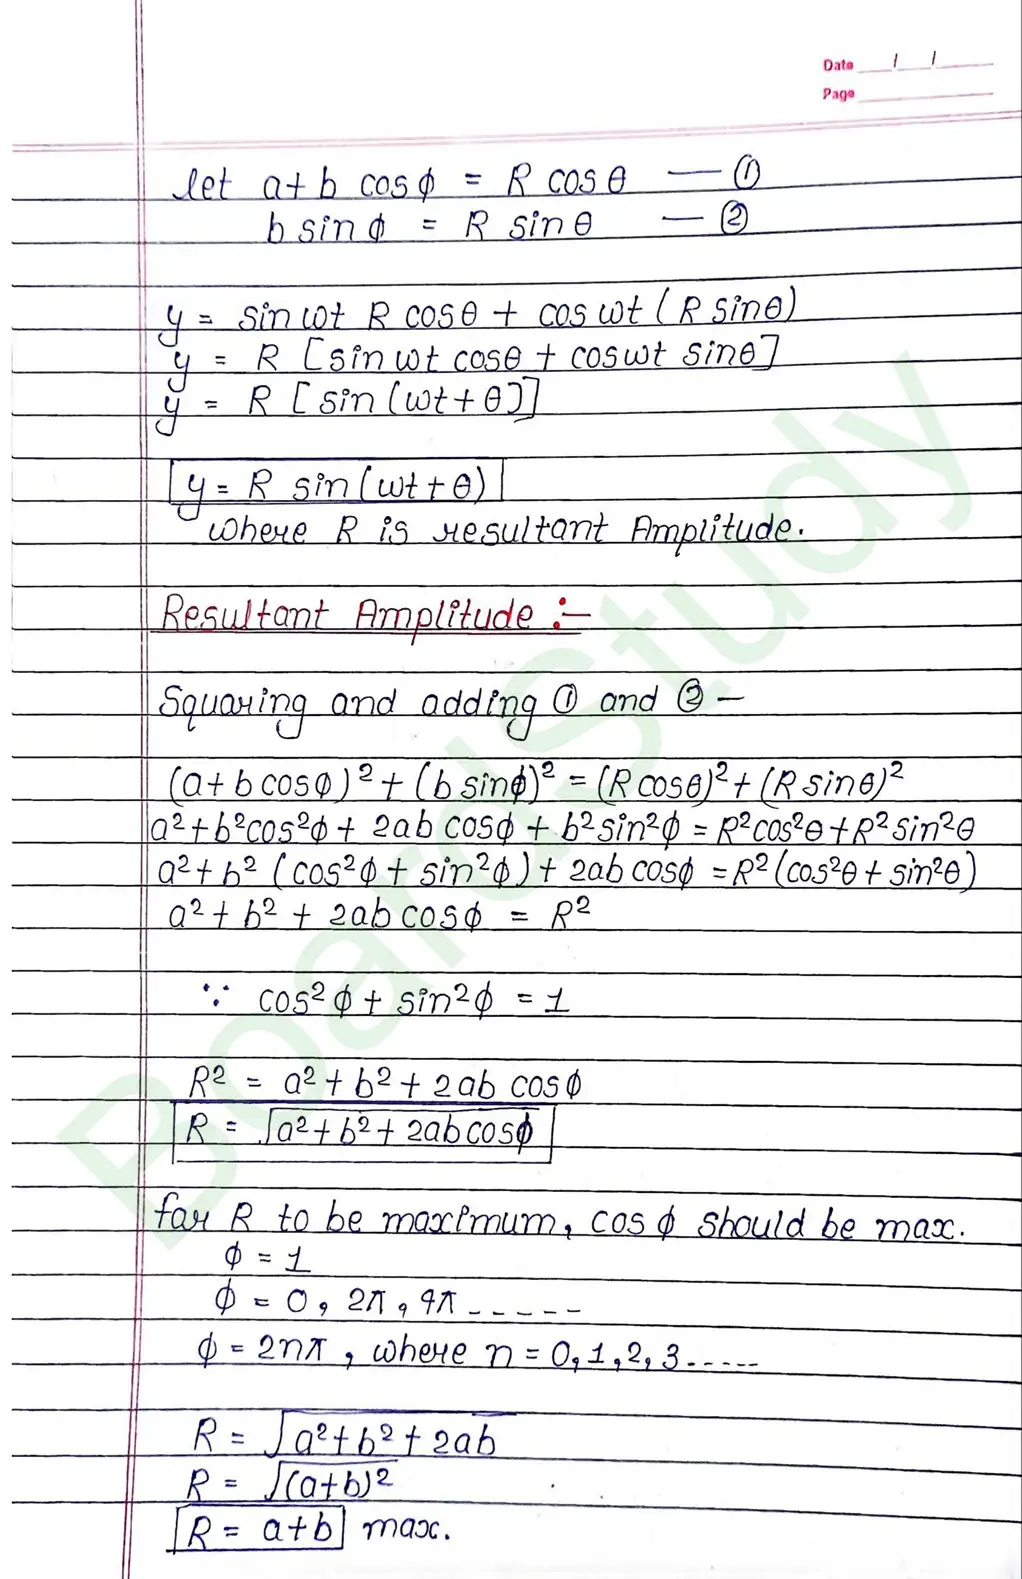 Date / /
Page
let a+b cosϕ = R cosθ — ①
b sinϕ = R sinθ — ②
y = sin wt R cosθ + cos wt (R sinθ)
y = R [sin wt cosθ + cos wt sinθ]
y = R [sin (wt + θ)]
y = R sin(wt + θ)
where R is resultant Amplitude.
Resultant Amplitude :-
Squaring and adding ① and ② -
(a+b cosϕ)² + (b sinϕ)² = (R cosθ)² + (R sinθ)²
a² + b²cos²ϕ + 2ab cosϕ + b²sin²ϕ = R²cos²θ + R²sin²θ
a² + b² (cos²ϕ + sin²ϕ) + 2ab cosϕ = R²(cos²θ + sin²θ)
a² + b² + 2ab cosϕ = R²
∵ cos²ϕ + sin²ϕ = 1
R² = a² + b² + 2ab cosϕ
R = √a² + b² + 2ab cosϕ
for R to be maximum, cosϕ should be max.
ϕ = 1
ϕ = 0, 2π, 4π -----
ϕ = 2nπ, where n = 0,1,2,3-----
R = √a² + b² + 2ab
R = √(a+b)²
R = a+b max.
BoardStudy